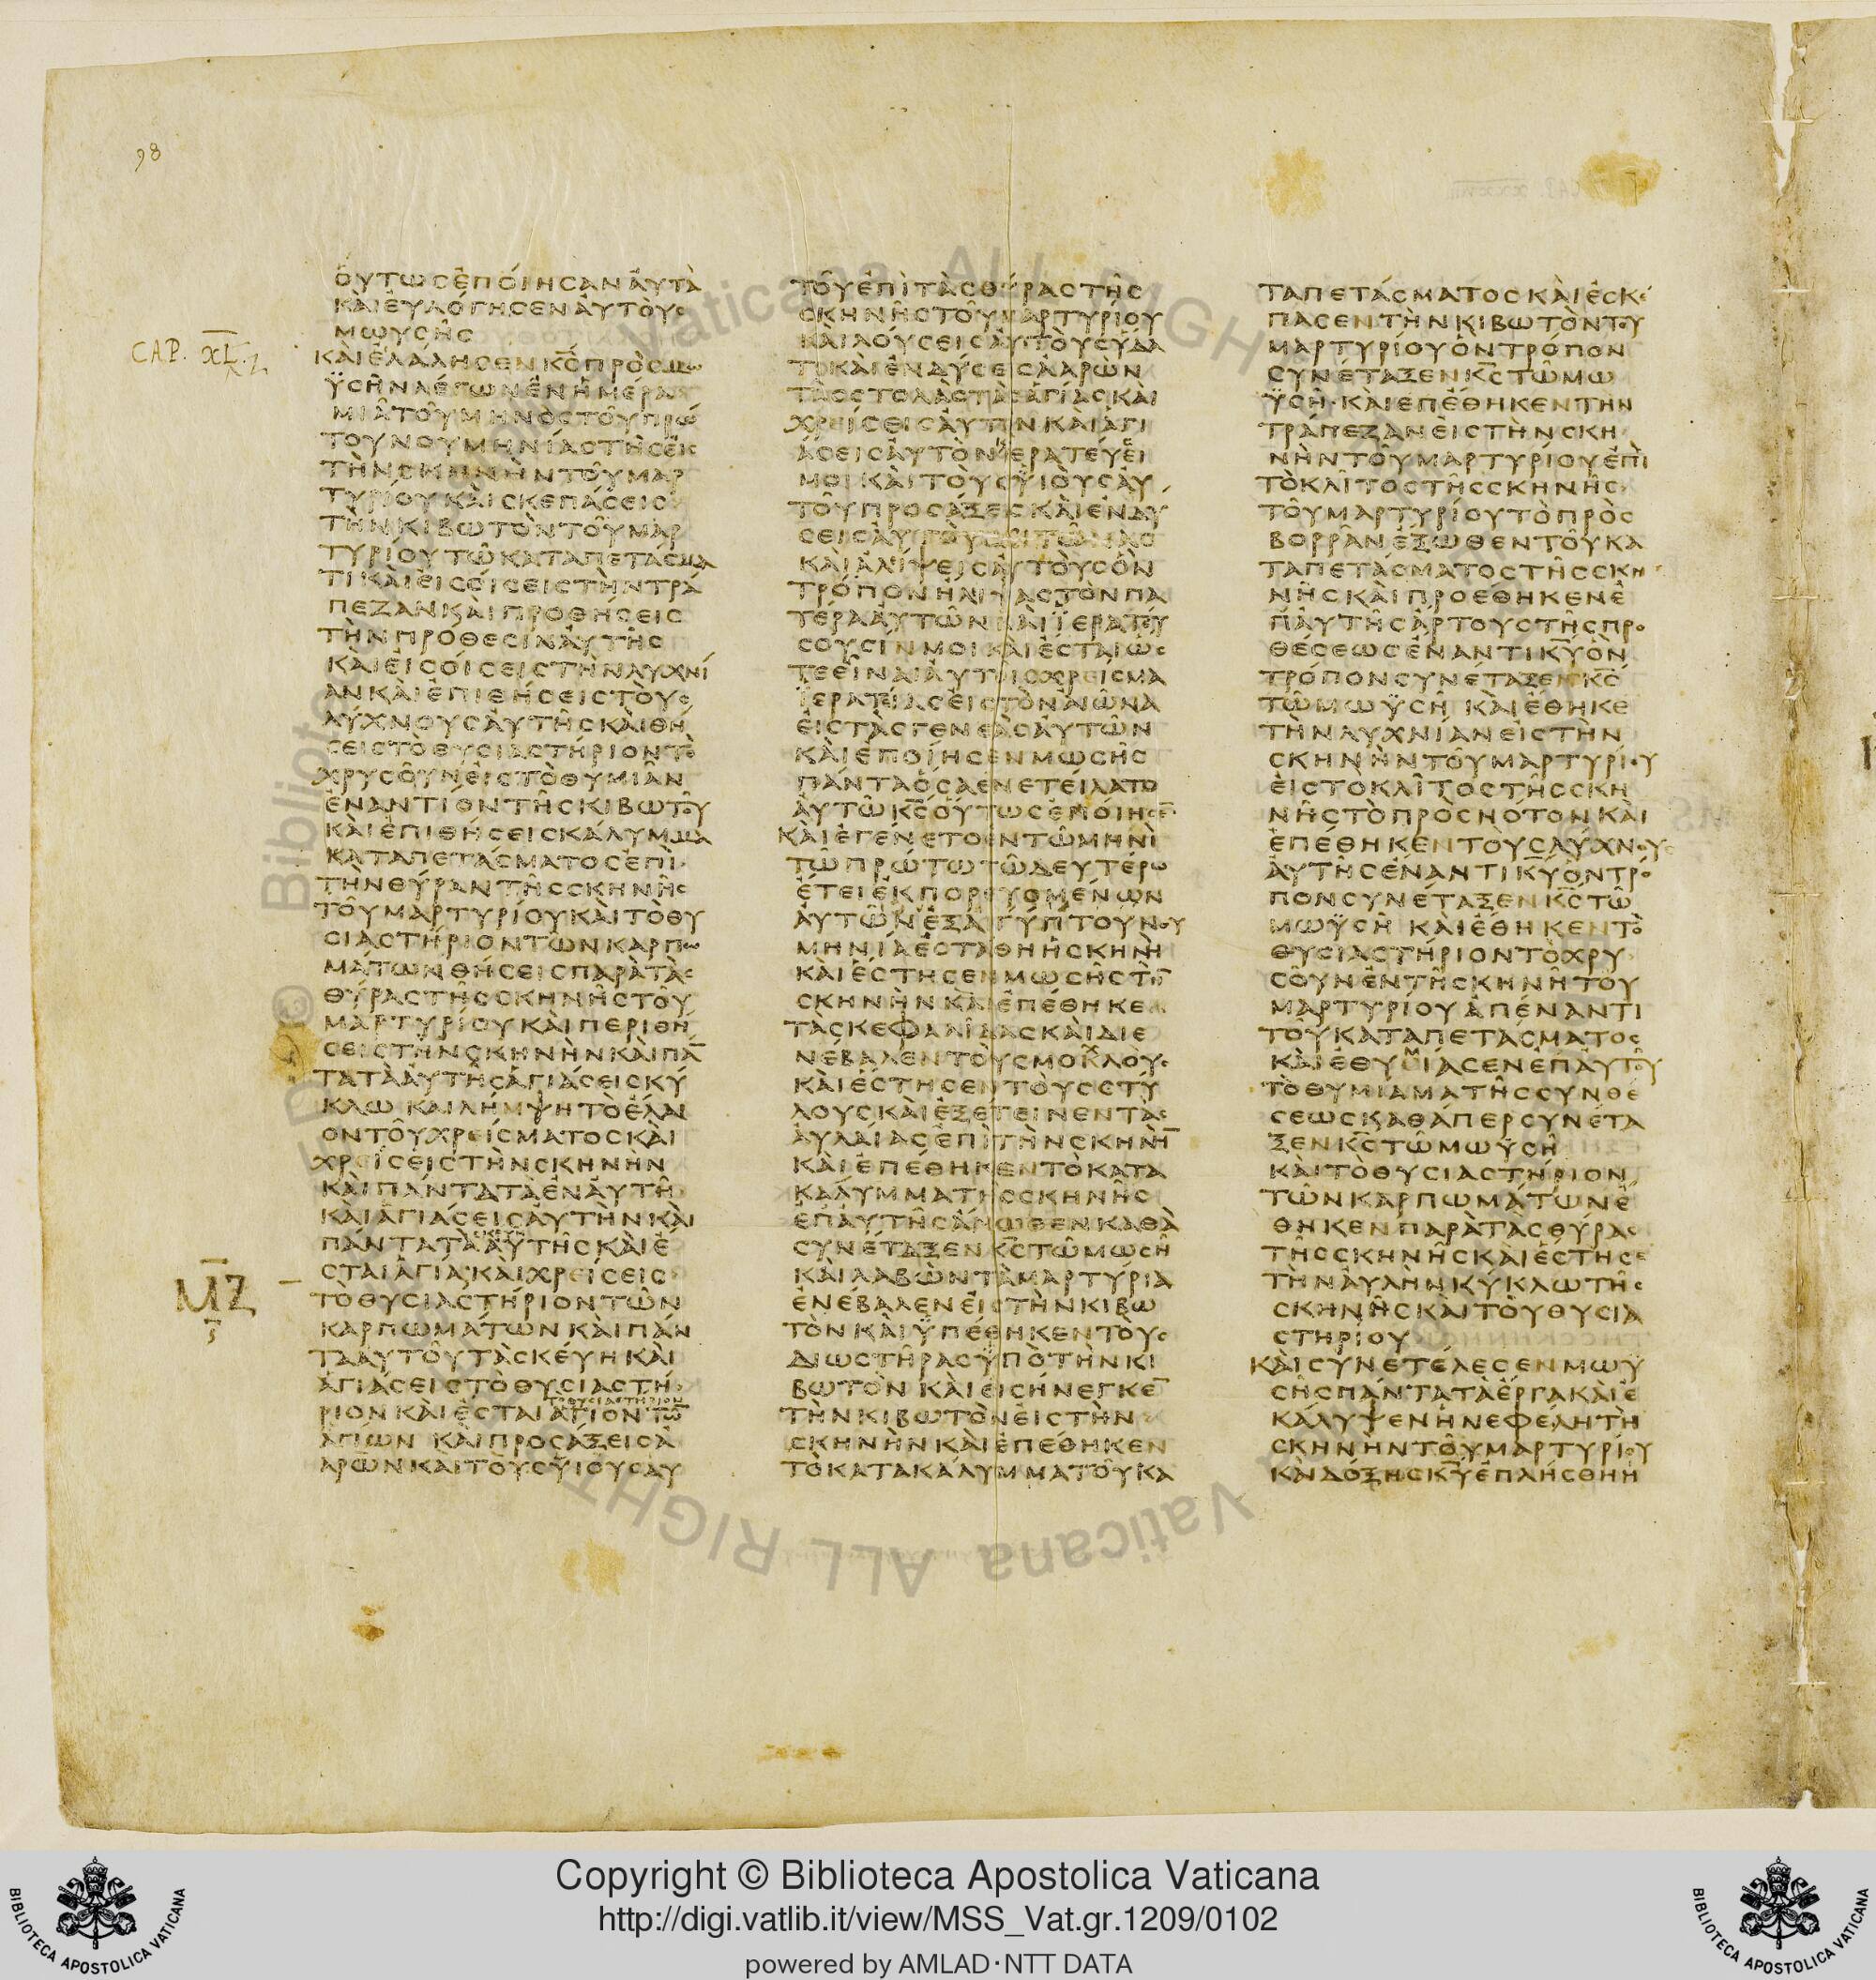 98
CAP. XL.
ὁυτωσἐπόιησανἀυτὰ
κὰιἐυλόγησενἀυτὸυσ
μωυσῆσ
κὰιἐλάλησενκ̅σ̅πρὸσμω
ϋσῆνλέγωνἐνἡμέρα
μιᾶτοῦμηνὸστοῦπρώ
τουνουμηνίαστήσεισ
τὴνσκηνὴντοῦμαρ
τυρίουκὰισκεπάσεισ
τὴνκιβωτὸντοῦμαρ
τυρίουτῶκαταπετάσμα
τικὰιἐισόισειστὴντρά
πεζανκὰιπροθήσεισ
τὴνπρόθεσινἀυτῆσ
κὰιἐισόισειστὴνλυχνί
ανκὰιἐπιθήσειστὸυσ
λύχνουσἀυτῆσκαιθή
σειστὸθυσιαστήριοντὸ
χρυσοῦνἐιστὸθυμιᾶν
ἐναντίοντῆσκιβωτοῦ
κὰιἐπιθήσεισκάλυμμα
καταπετάσματοσἐπὶ
τὴνθύραντῆσσκηνῆσ
τοῦμαρτυρίουκὰιτὸθυ
σιαστήριοντῶνκαρπω
μάτωνθήσεισπαρὰτὰσ
θύραστῆσσκηνῆστοῦ
μαρτυρίουκὰιπεριθή
σειστὴνσκηνὴνκὰιπά̅
τατὰἀυτῆσἁγιάσεισκύ
κλω καιλήμψητὸἔλαι
οντοῦχρείσματοσκὰι
χρείσειστὴνσκηνὴν
κὰιπάνταταἐνἀυτῆ
κὰιἁγιάσεισἀυτὴνκὰι
πάντατὰἀυτῆσκὰιἔ
σταιἁγία·κὰιχρείσεισ
Μ̅Ζ̅
τὸθυσιαστήριοντῶν
καρπωμάτωνκὰιπάν
τααυτοῦτὰσκέυηκὰι
ἁγιάσειστὸθυσιαστή
τὸθυσιαστήριον
ριονκὰιἔσταιἅγιοντῶ̅
ἁγίων κὰιπροσάξεισἀ
αρὼνκαιτὸυσϋἱουσαυ
τοῦἐπὶτὰσθύραστῆσ
σκηνῆστοῦμαρτυρίου
κὰιλόυσεισἀυτὸυσὕδα
τικὰιἐνδύσεισἀαρὼν
τὰσστολὰστὰσἁγίασκὰι
χρείσεισἀυτὸνκὰιἁγι
άσεισἀυτὸνϊερατέυει
μοικὰιτὸυσϋἱὸυσἀυ
τοῦπροσάξεισκὰιἐνδύ
σεισἀυτὸυσχιτῶνασ
κὰιἀλίψεισἀυτὸυσὃν
τρόπονήλιψαστὸνπα
τέραἀυτῶνκὰιϊερατέυ
σουσίνμοικὰιἔσταιὥσ
τεεἶναιἀυτοῖσχρεῖσμα
ϊερατίασἐιστὸνἀιῶνα
ἐιστὰσγενεὰσἀυτῶν
κὰιἐποίησενμωσῆσ
πάνταὅσαἐνετείλατο
ἀυτῶκ̅σ̅ὅυτωσἐπόιησε̅
κὰιἐγένετοἐντῶμηνὶ
τῶπρώτωτῶδευτέρω
ἔτειἐκπορευομένων
ἀυτῶνἐξαιγύπτουνου
μηνίαἐστάθηἡσκηνὴ
κὰιἔστησενμωσῆστὴ̅
σκηνὴνκὰιἐπέθηκε
τὰσκεφαλίδασκὰιδιε
νέβαλεντὸυσμοχλουσ
κὰιἔστησεντὸυσστύ
λουσκὰιἐξέτεινεντὰσ
ἀυλάιασἐπὶτὴνσκηνὴ̅
κὰιἐπέθηκεντὸκατα
κάλυμματῆσσκηνῆσ
ἐπἀυτῆσἄνωθενκαθὰ
συνέταξενκ̅σ̅τῶμωσῆ
κὰιλαβὼντὰμαρτύρια
ἐνέβαλενἐιστὴνκιβω
τὸνκὰιϋπέθηκεντὸυσ
διωστῆρασϋπὸτὴνκι
βωτὸν κὰιἐισήνεγκε̅
τὴνκιβωτὸνἐιστὴν
σκηνὴνκὰιἐπέθηκεν
τὸκατακάλυμματοῦκα
ταπετάσματοσκὰιἐσκέ
πασεντὴνκιβωτὸντου
μαρτυρίουὃντρόπον
συνέταξενκ̅σ̅τῶμω
ϋσῆ·κὰιεπέθηκεντην
τράπεζανἐιστὴνσκη
νὴντοῦμαρτυριουἐπὶ
τὸκλίτοστῆσσκηνῆσ
τοῦμαρτυρίουτὸπρὸσ
βορρᾶνἔξωθεντοῦκα
ταπετάσματοστῆσσκη
νῆσκὰιπροέθηκενἐ
πἀυτῆσἄρτουστῆσπρο
θέσεωσἔναντικ̅υ̅ὃν
τρόπονσυνέταξενκ̅σ̅
τῶμωϋσῆ κὰιέθηκε
τὴνλυχνίανἐιστὴν
σκηνὴντοῦμαρτυρίου
ἐιστοκλίτοστῆσσκη
νῆστὸπρὸσνότονκὰι
ἐπέθηκεντουσλύχνουσ
ἀυτῆσέναντικ̅υ̅ὃντρό
πονσυνέταξενκ̅σ̅τῶ
μωϋσῆ κὰιέθηκεντὸ
θυσιαστήριοντὸχρυ
σοῦνἐντῆσκηνῆτου
μαρτυρίουἀπέναντι
τοῦκαταπετάσματοσ
κὰιἐθυμίασενἐπἀυτοῦ
τὸθυμίαματῆσσυνθέ
σεωσκαθάπερσυνέτα
ξενκ̅σ̅τῶμωϋσῆ
κὰιτὸθυσιαστήριον
τῶνκαρπωμάτωνἔ
θηκενπαρὰτὰσθύρασ
τῆσσκηνῆσκὰιἔστησε
τὴνἀυλὴνκύκλωτῆσ
σκηνῆσκὰιτοῦθυσια
στηρίου
κὰισυνετέλεσενμωϋ
σῆσπάντατὰἔργακὰιἐ
κάλυψενἡνεφέλητὴ
σκηνὴντοῦμαρτυρίου
κὰιδόξησκ̅υ̅ἐπλήσθηἡ
Copyright © Biblioteca Apostolica Vaticana
http://digi.vatlib.it/view/MSS_Vat.gr.1209/0102
powered by AMLAD·NTT DATA
BIBLIOTECA APOSTOLICA VATICANA
BIBLIOTECA APOSTOLICA VATICANA